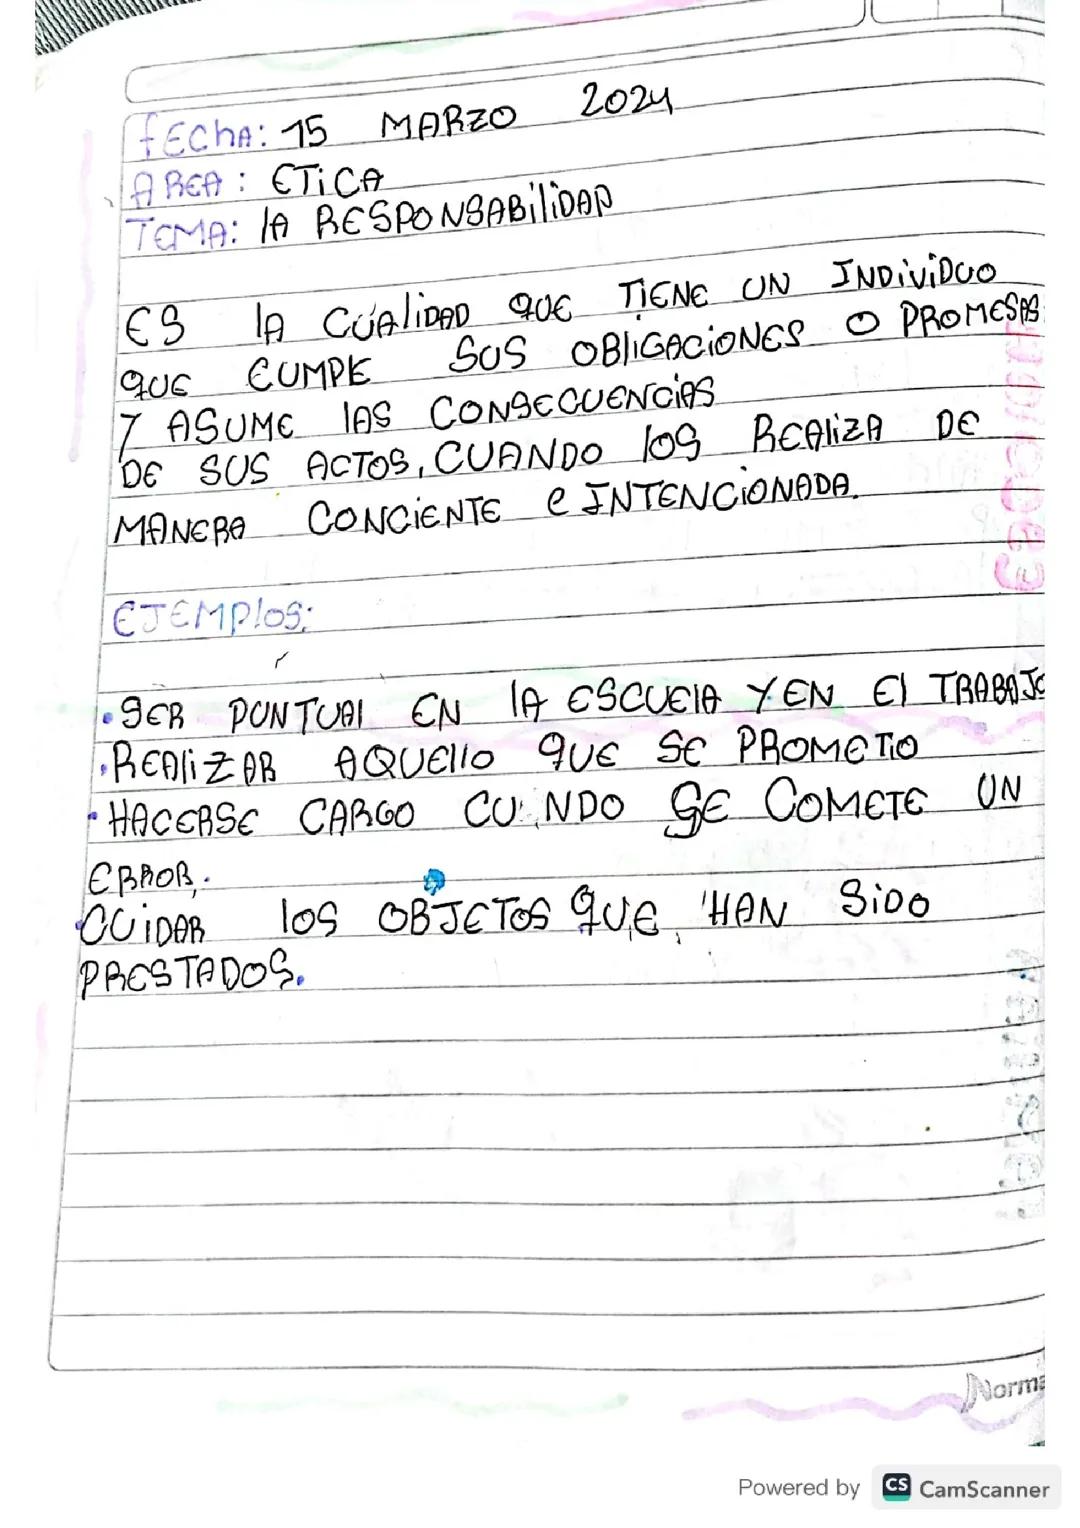 fECHA: 15 MARZO 2024
AREA: ETiCA
TEMA: lA RESPONSABiliDAD
ES lA CUAliDAD QUE TIENE UN INDiViDUO
QUE CUMPlE SUS OBliGACiONES O PROMESAS
Y ASUME lAS CONSECUENCiAS
DE SUS ACTOS, CUANDO lOS REAliZA DE
MANERA CONCiENTE e INTENCiONADA.
EJEMPlOS:
•SER PUNTUAl EN lA ESCUElA Y EN El TRABAJO
•REAliZAR AQUEllO QUE SE PROMETiO
•HACERSE CARGO CUANDO SE COMETE UN
ERROR.
•CUiDAR lOS OBJETOS QUE HAN SiDO
PRESTADOS.
Norma
Powered by CS CamScanner